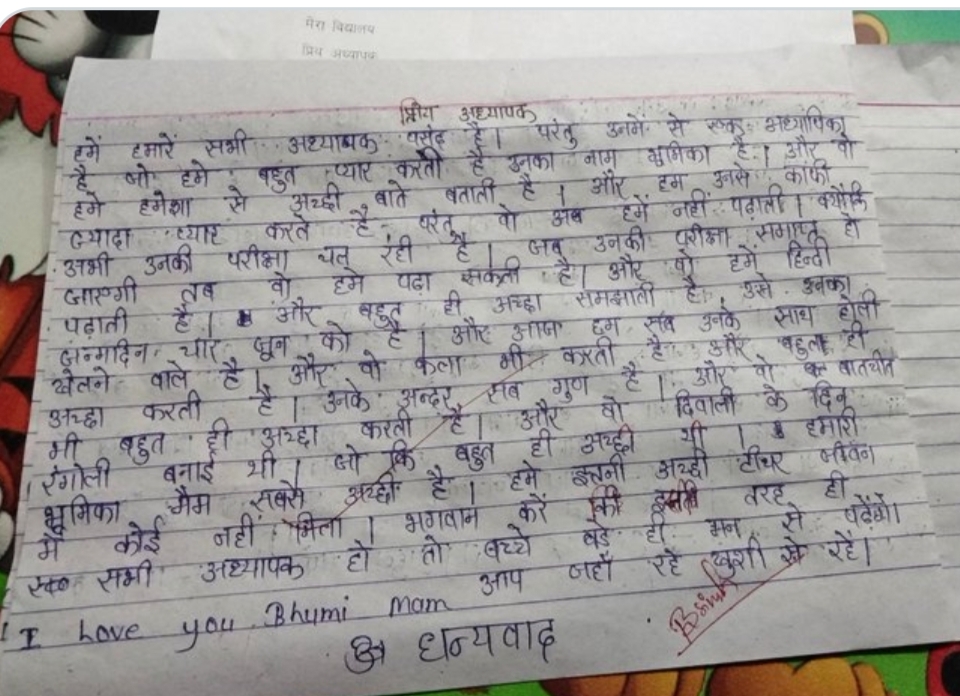 मेरा विद्यालय
प्रिय अध्यापक
प्रिय अध्यापक
हमें हमारें सभी अध्यापक पसंद है। परंतु उनमें से एक अध्यापिका
है जो हमे बहुत प्यार करती है उनका नाम भुमिका है। और वो
हमे हमेशा से अच्छी बाते बताती है। और हम उनसे काफी
ज्यादा प्यार करते है परंतु वो अब हमें नहीं पढ़ाती। क्योंकि
अभी उनकी परीक्षा चल रही है। जब उनकी परीक्षा समाप्त हो
जाएगी तब वो हमे पढ़ा सकती है। और वो हमें हिन्दी
पढ़ाती है। और बहुत ही अच्छा समझाती है उसे उनका
जन्मदिन चार जून को है। और आज हम सब उनके साथ होली
खेलने वाले है। और वो कला भी करती है और बहुत ही
अच्छा करती है। उनके अन्दर सब गुण है। और वो बातचीत
भी बहुत ही अच्छा करती है। और वो दिवाली के दिन
रंगोली बनाई थी। जो कि बहुत ही अच्छी थी। हमारी
भूमिका मैम सबसे अच्छी है। हमे इतनी अच्छी टीचर जीवन
में कोई नही मिला। भगवान करें कि तरह ही
सभी अध्यापक हो तो बच्चे बड़े ही मन से पढ़ेंगे।
आप जहाँ रहे खुशी से रहें।
I Love you Bhumi Mam
धन्यवाद